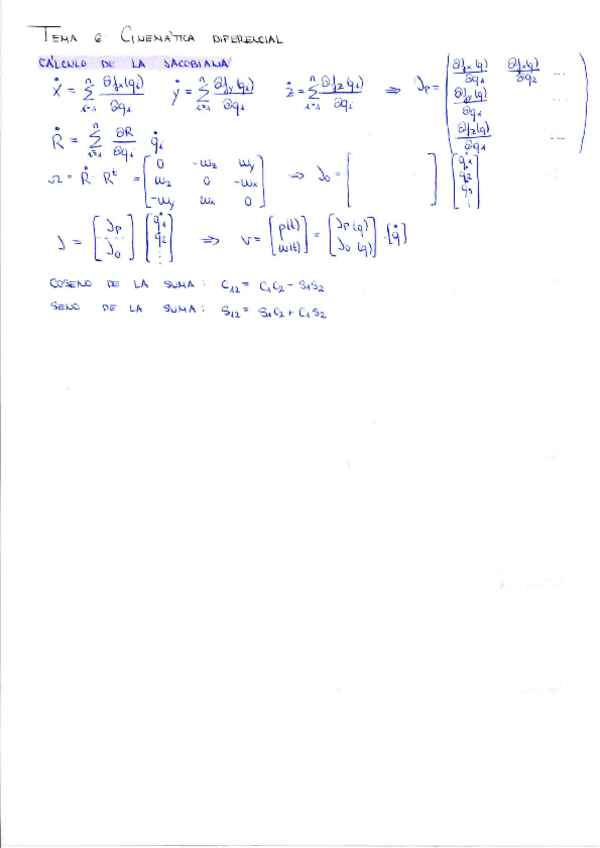 TEMA 6 CINEMÁTICA DIFERENCIAL
CÁLCULO DE LA JACOBIANA
ẋ = Σ_{i=1}^{n} ∂fx(qi)/∂qi   ẏ = Σ_{i=1}^{n} ∂fy(qi)/∂qi   ż = Σ_{i=1}^{n} ∂fz(qi)/∂qi ⇒ Jp = ( ∂fx(q)/∂q1 ∂fx(q)/∂q2 ... ; ∂fy(q)/∂q1 ; ∂fz(q)/∂q1 ... )
Ṙ = Σ_{i=1}^{n} ∂R/∂qi q̇i
Ω = Ṙ · R^t = [ 0 -ωz ωy ; ωz 0 -ωx ; -ωy ωx 0 ] ⇒ Jo = [ ] [ q̇1 ; q̇2 ; q̇3 ; ⋮ ]
J = [ Jp ; Jo ] [ q̇1 ; q̇2 ; ⋮ ] ⇒ v = [ p(t) ; ω(t) ] = [ Jp(q) ; Jo(q) ] · [q̇]
COSENO DE LA SUMA: C12 = C1C2 - S1S2
SENO DE LA SUMA: S12 = S1C2 + C1S2